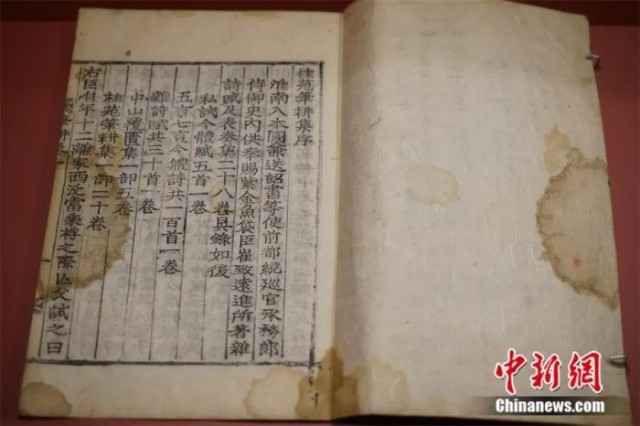 桂苑筆耕集序
淮南入本國兼送詔書等使前都統巡官承務郎
侍御史內供奉賜紫金魚袋臣崔致遠進所著雜
詩賦及表奏集二十八卷具錄如後
私試今體賦五首一卷
五言七言今體詩共一百首一卷
雜詩賦共三十首一卷
中山覆簣集一部五卷
桂苑筆耕集一部二十卷
右臣自年十二離家西泛當乘桴之際亡父誡之曰
中新網
Chinanews.com